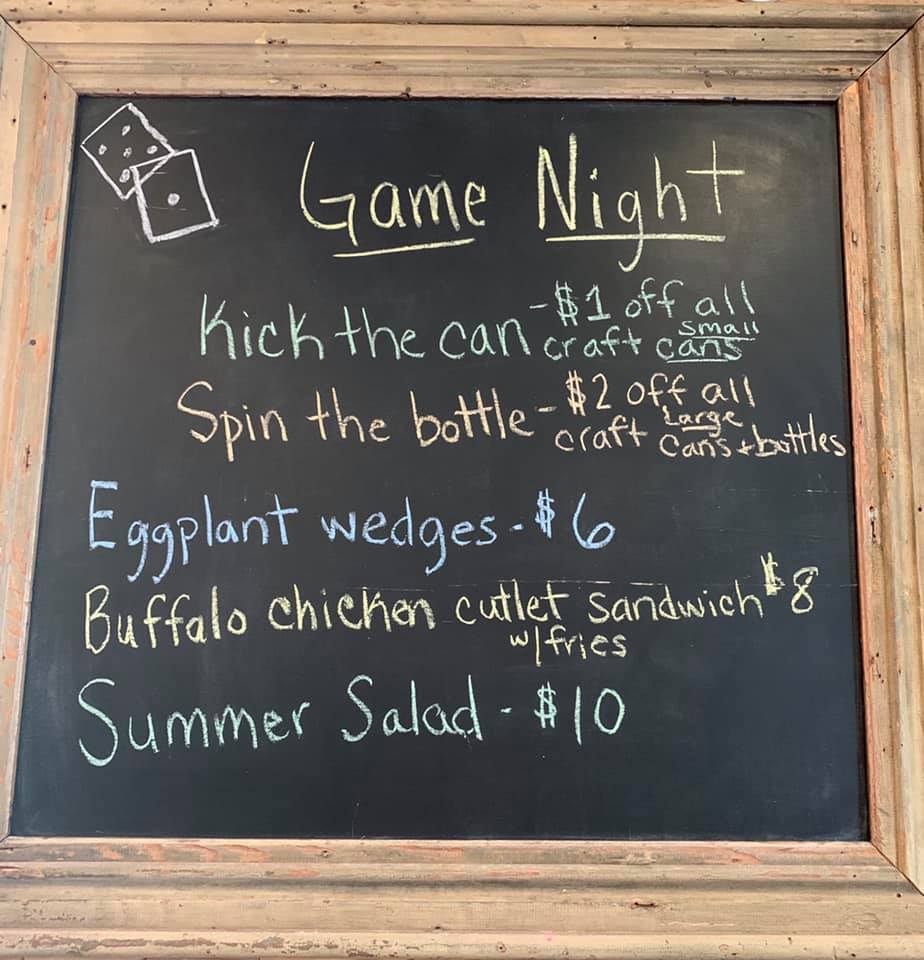 Game Night
Kick the can - $1 off all
craft small cans
Spin the bottle - $2 off all
craft Large cans + bottles
Eggplant wedges - $6
Buffalo chicken cutlet sandwich $8
w/fries
Summer Salad - $10